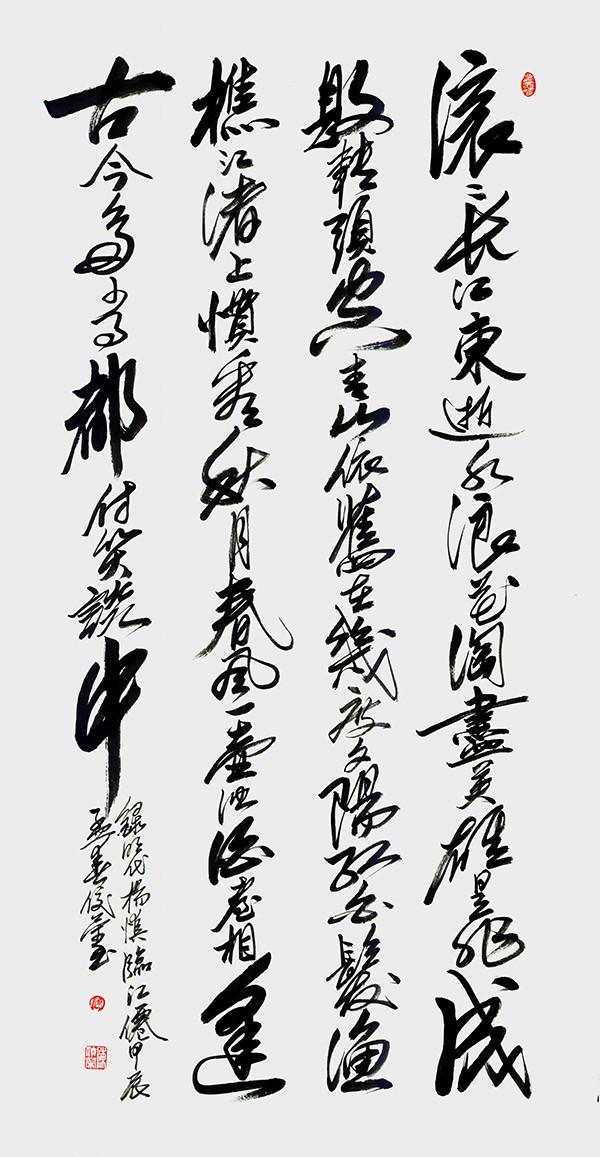 滚〻長江東逝水浪花淘盡英雄是非成
敗轉頭空青山依舊在幾度夕陽紅白髮漁
樵江渚上慣看秋月春風一壺浊酒喜相逢
古今多少事都付笑談中
錄明代楊慎臨江僊甲辰
孟春俊